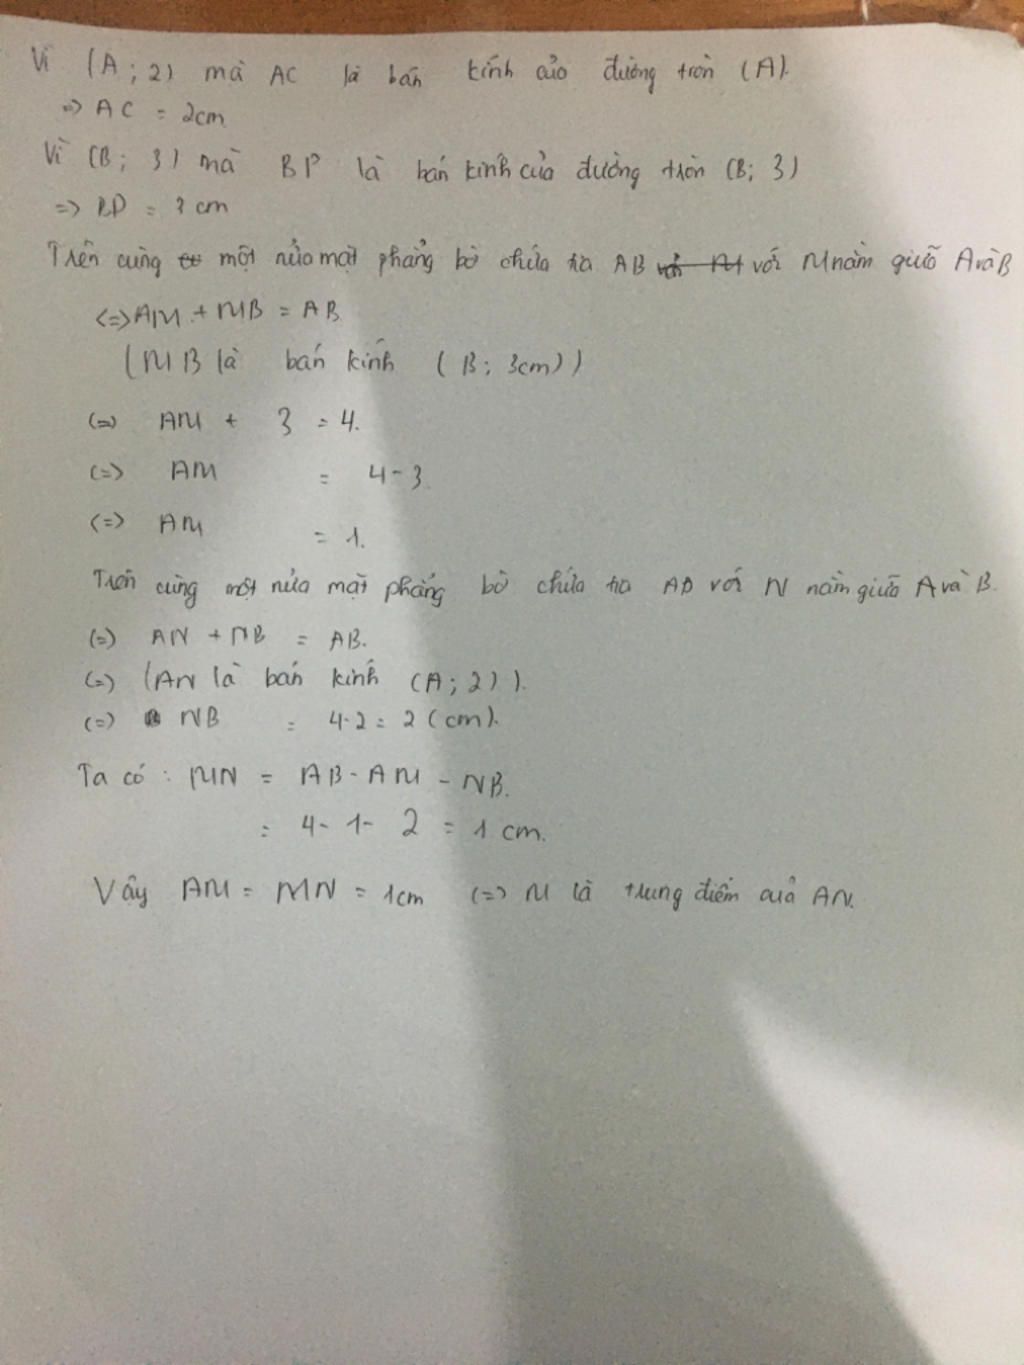 Vì (A; 2) mà AC là bán kính của đường tròn (A).
=> AC = 2cm
Vì (B; 3) mà BP là bán kính của đường tròn (B; 3)
=> BD = 3 cm
Trên cùng một nửa mặt phẳng bờ chứa tia AB với M nằm giữa A và B
<=> AM + MB = AB
(MB là bán kính (B; 3cm))
<=> AM + 3 = 4.
<=> AM = 4 - 3.
<=> AM = 1.
Trên cùng một nửa mặt phẳng bờ chứa tia AB với N nằm giữa A và B.
<=> AN + NB = AB.
<=> (AN là bán kính (A; 2)).
<=> NB = 4-2 = 2 (cm).
Ta có: MN = AB - AM - NB.
= 4 - 1 - 2 = 1 cm.
Vậy AM = MN = 1cm <=> M là trung điểm của AN.